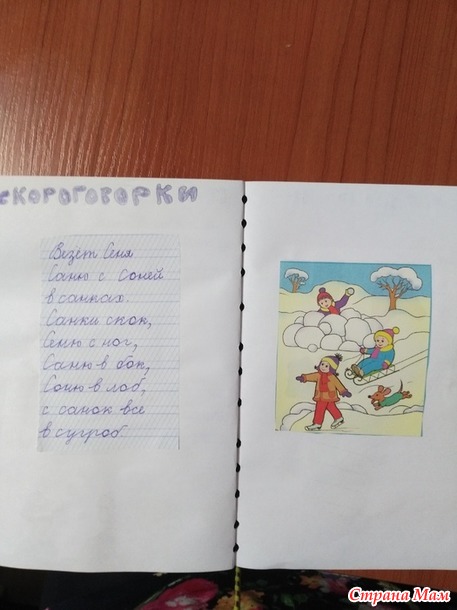 СКОРОГОВОРКИ
Везёт Сеня
Саню с Соней
в санках.
Санки скок,
Сеню с ног,
Саню в бок,
Соню в лоб,
с санок все
в сугроб
Страна Мам